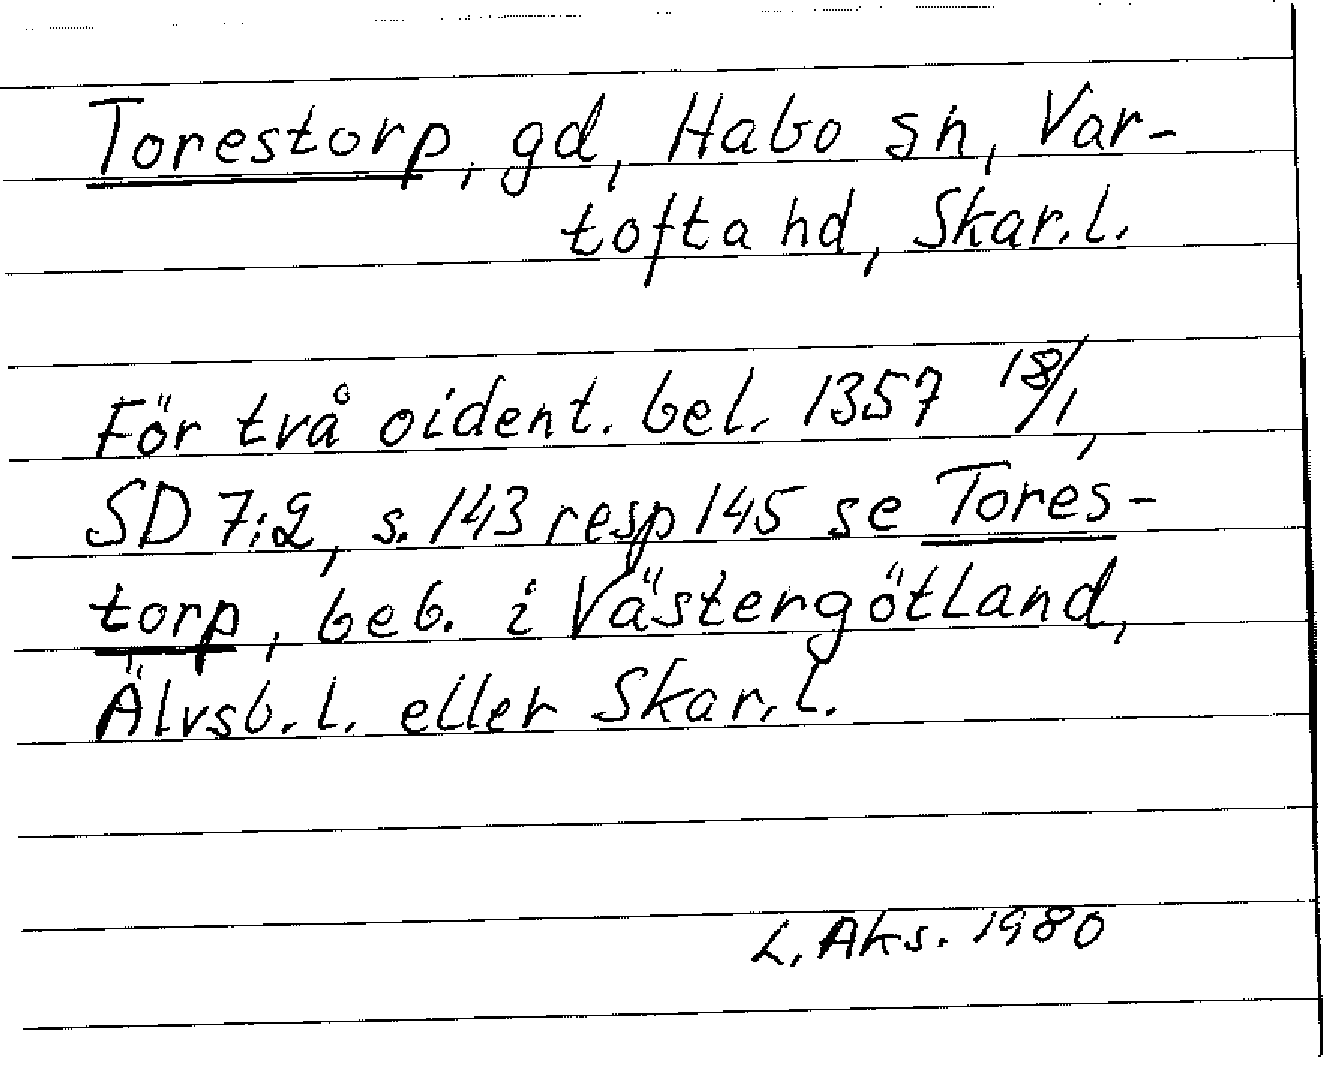 Torestorp, gd, Habo sn, Var-
tofta hd, Skar. l.
För två oident. bel. 1357 18/1,
SD 7:2, s. 143 resp 145 se Tores-
torp, beb. i Västergötland,
Älvsb. l. eller Skar. l.
L. Aks. 1980